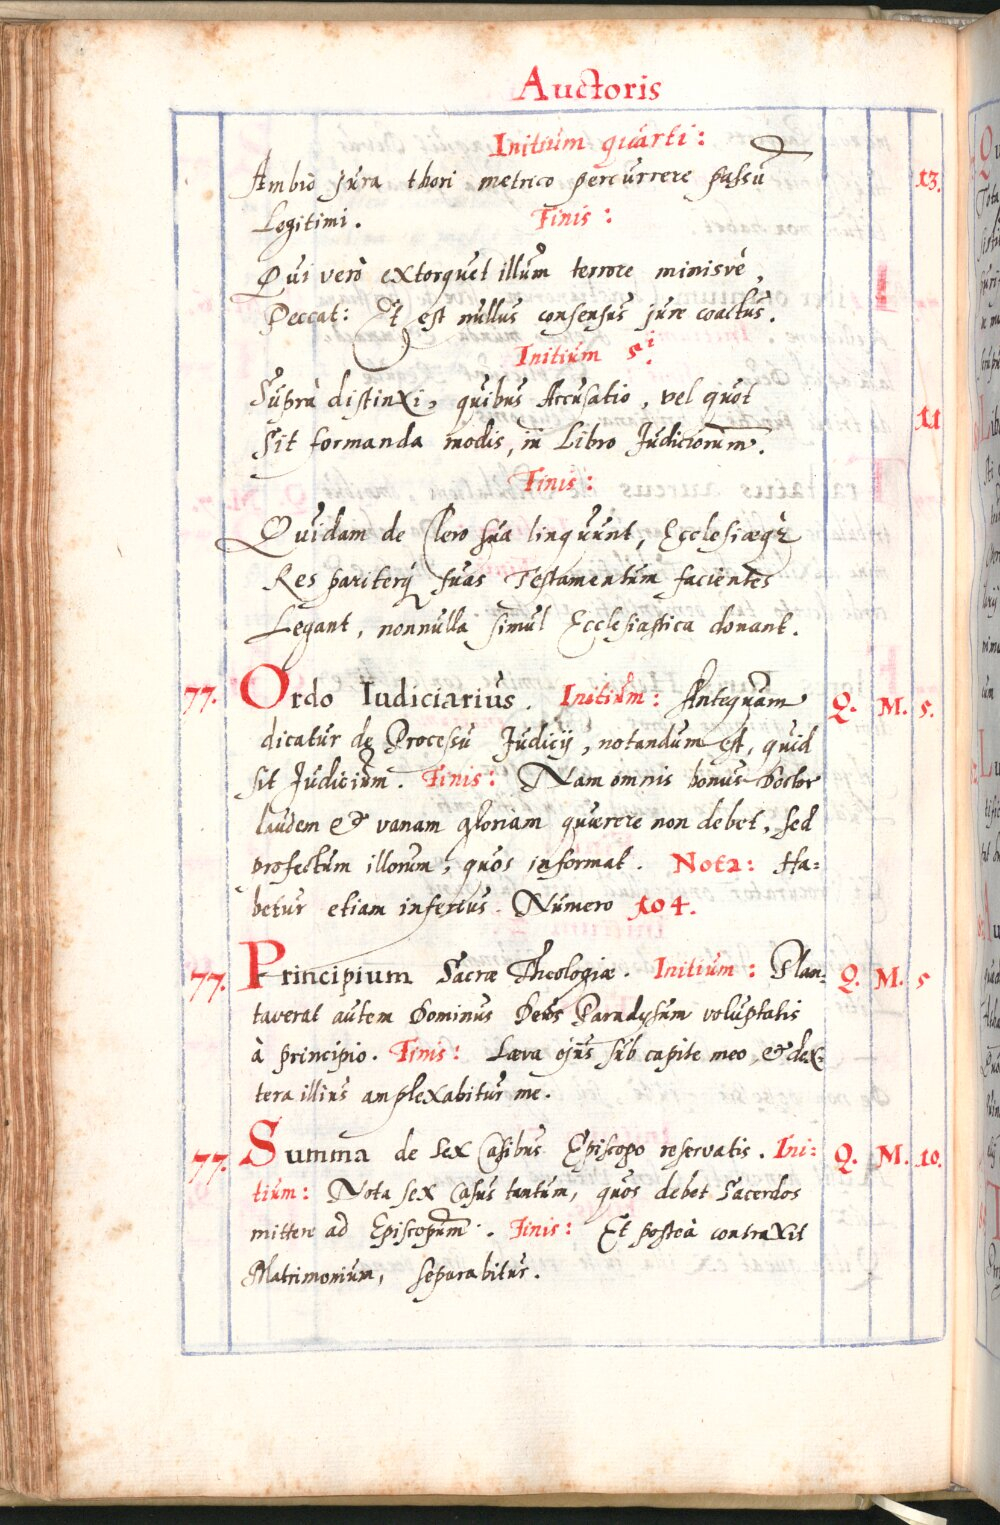 Auctoris
Initium quarti :
Ambio jura thori metrico percurrere passu 13.
Logitimi. Finis :
Qui verò extorquet illum terrore minisvè,
Peccat: Et est nullus consensus jure coactus.
Initium 5i.
Suprà distinxi, quibus Accusatio, vel quot 11
Sit formanda modis, in Libro Judiciorum.
Finis :
Quidam de Clero sua linquunt, Ecclesiaeq;
Res pariterq; suas Testamentum facientes
Legant, nonnulla simul Ecclesiastica donant.
77. Ordo Iudiciarius. Initium : Antequam Q. M. 5.
dicatur de Processu Judicij, notandum est, quid
sit Judicium. Finis : Nam omnis bonus Doctor
laudem & vanam gloriam quaerere non debet, sed
profectum illorum, quos informat. Nota : Ha=
betur etiam inferius Numero 104.
77. Principium Sacrae Theologiae. Initium : Plan= Q. M. 5
taverat autem Dominus Deus Paradysum voluptatis
à principio. Finis : Laeva ejus sub capite meo, & dex=
tera illius amplexabitur me.
77. Summa de sex Casibus Episcopo reservatis. Ini= Q. M. 10.
tium : Nota sex Casus tantum, quos debet Sacerdos
mittere ad Episcopum. Finis : Et posteà contraxit
Matrimonium, separabitur.